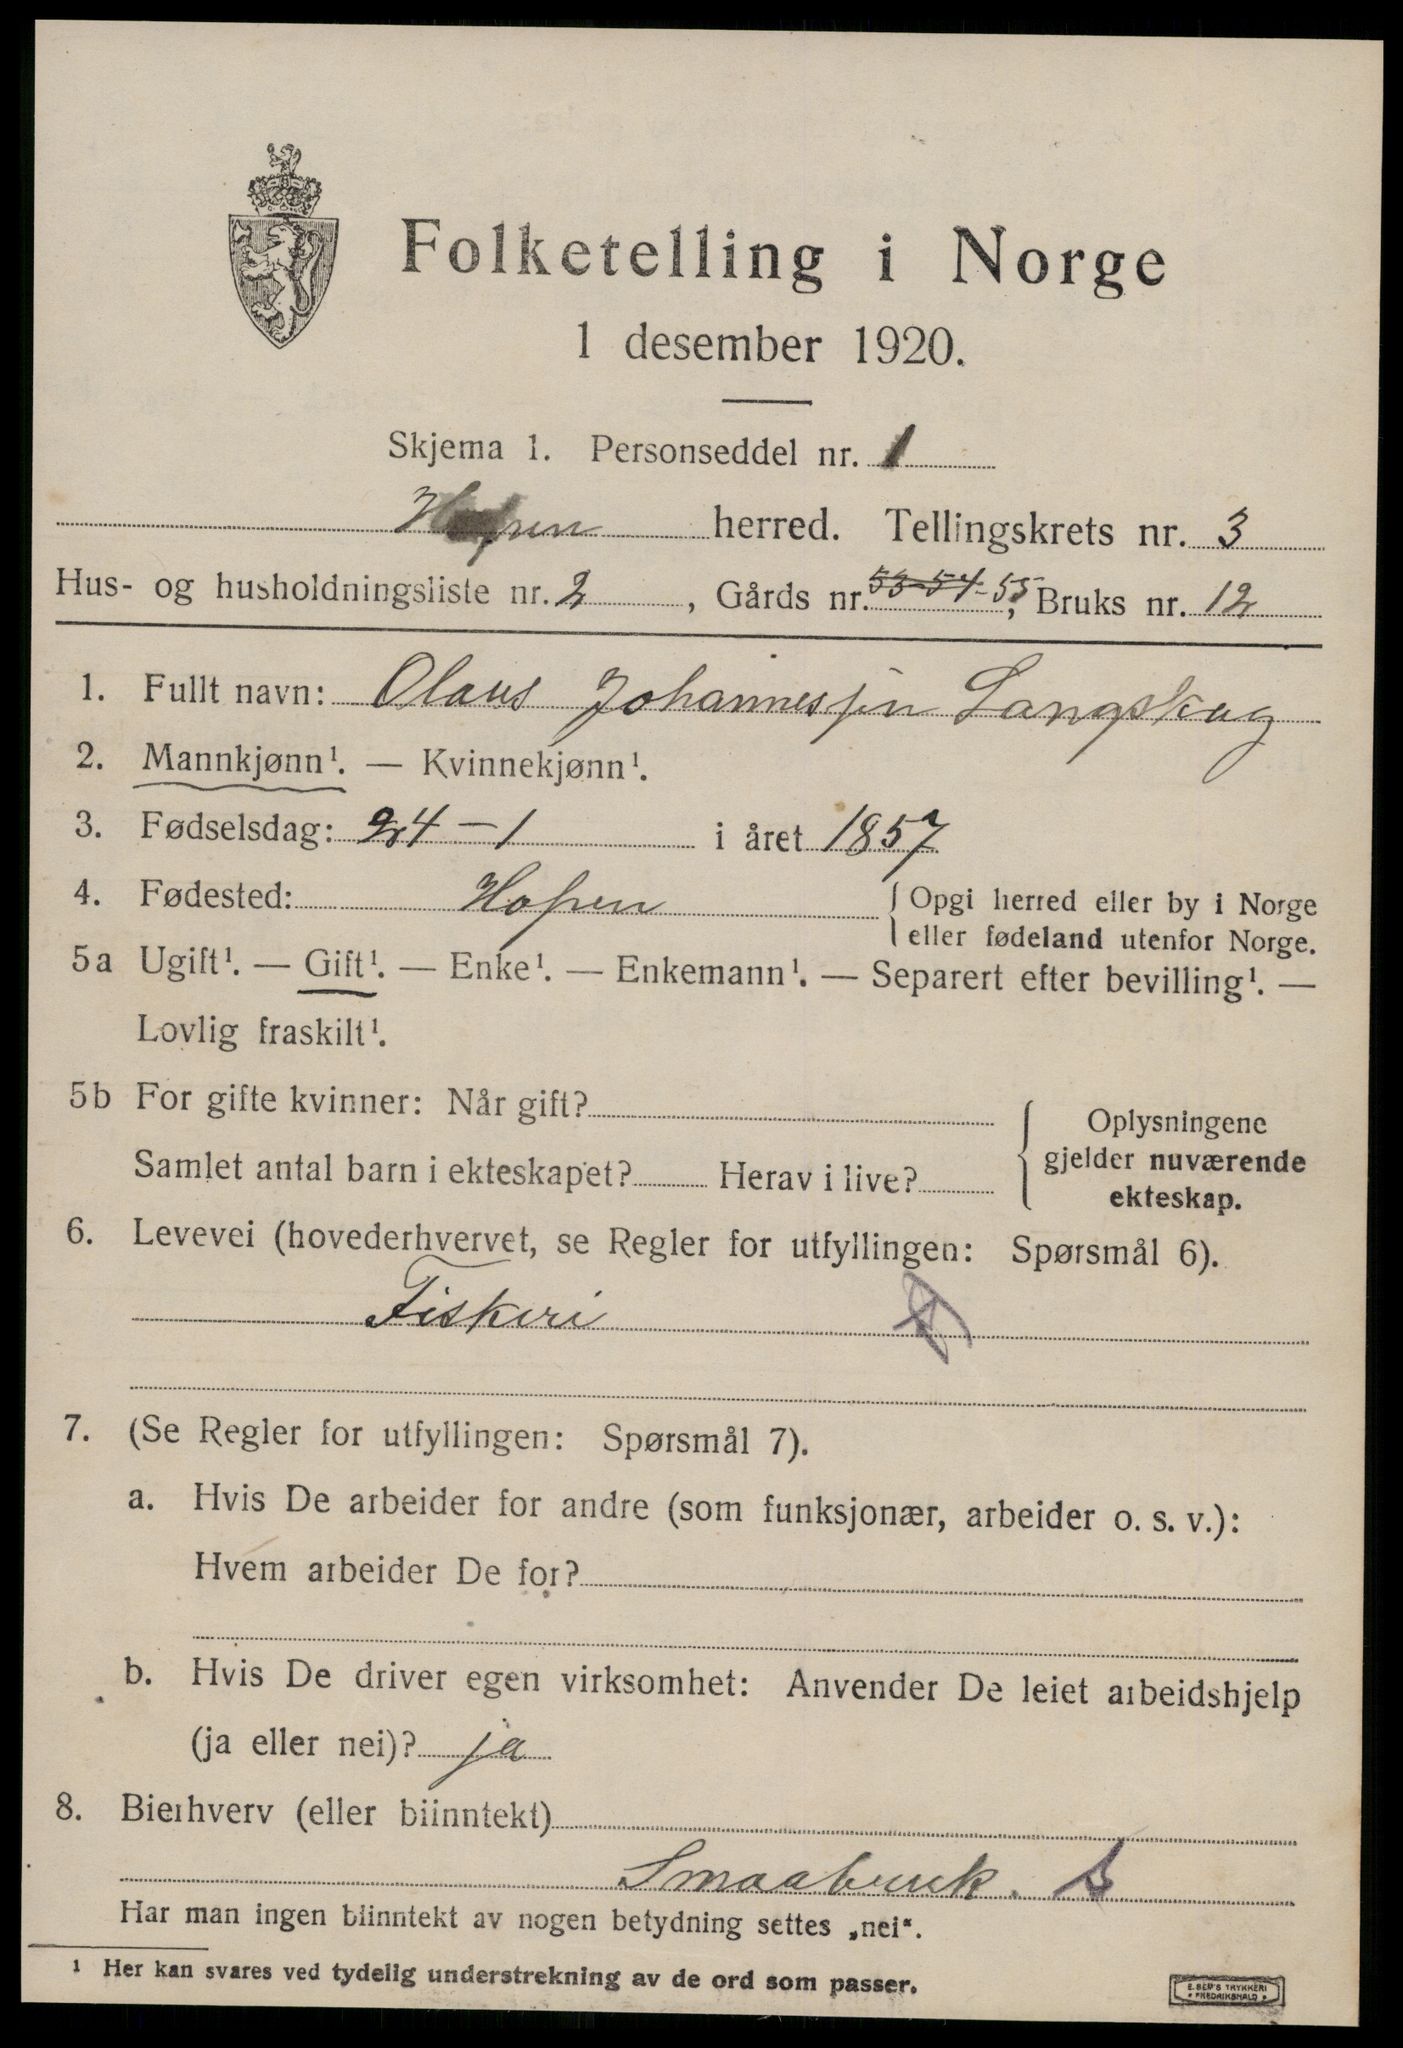 Folketelling i Norge
1 desember 1920.
Skjema 1. Personseddel nr. 1
Hopen herred. Tellingskrets nr. 3
Hus- og husholdningsliste nr. 2, Gårds nr. 53-54-55, Bruks nr. 12
1. Fullt navn: Olaus Johannessen Langskag
2. Mannkjønn¹. — Kvinnekjønn¹.
3. Fødselsdag: 24 – 1 i året 1857
4. Fødested: Hopen { Opgi herred eller by i Norge
eller fødeland utenfor Norge.
5a Ugift¹. — Gift¹. — Enke¹. — Enkemann¹. — Separert efter bevilling¹. —
Lovlig fraskilt¹.
5b For gifte kvinner: Når gift?
Samlet antal barn i ekteskapet? Herav i live?
{ Oplysningene
gjelder nuværende
ekteskap.
6. Levevei (hovederhvervet, se Regler for utfyllingen: Spørsmål 6).
Fiskeri
7. (Se Regler for utfyllingen: Spørsmål 7).
a. Hvis De arbeider for andre (som funksjonær, arbeider o. s. v.):
Hvem arbeider De for?
b. Hvis De driver egen virksomhet: Anvender De leiet arbeidshjelp
(ja eller nei)? ja
8. Bierhverv (eller biinntekt)
Smaabruk. S
Har man ingen biinntekt av nogen betydning settes „nei“.
¹ Her kan svares ved tydelig understrekning av de ord som passer.
E. SEM'S TRYKKERI
• FREDRIKSHALD •